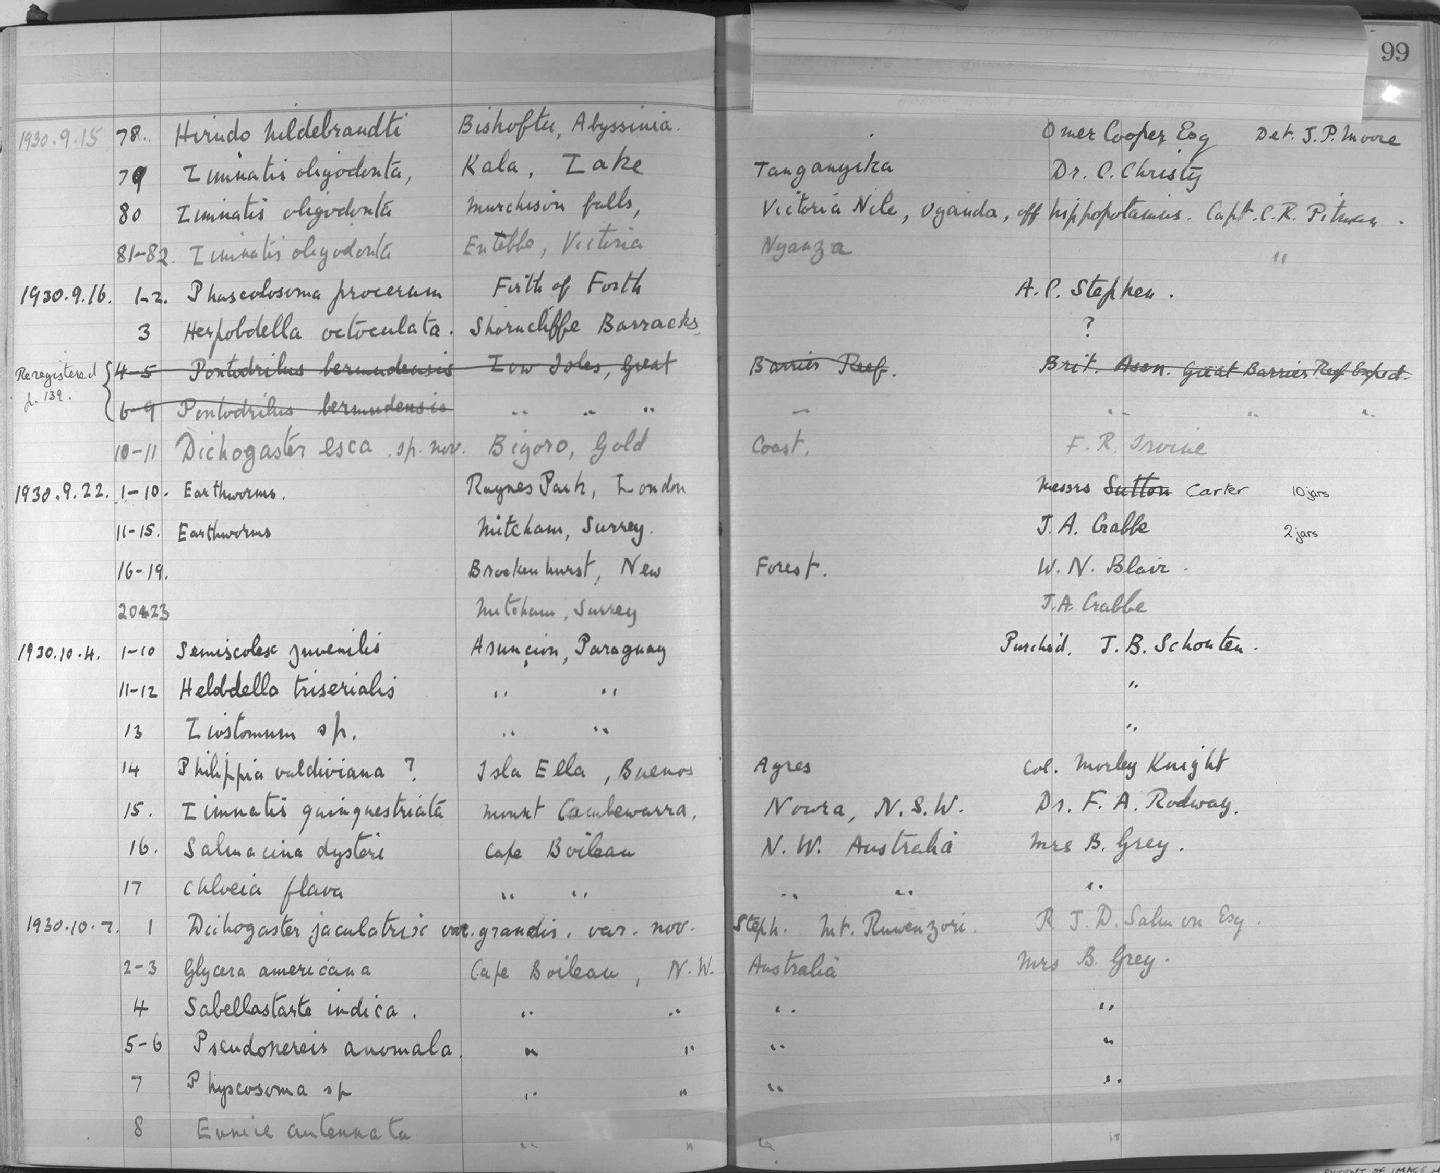 99
1930.9.15 78. Hirudo hildebrandti Bishoftu, Abyssinia. Omer Cooper Esq Det. J.P. Moore
79 Limnatis oligodonta, Kala, Lake Tanganyika Dr. C. Christy
80 Limnatis oligodonta Murchison falls, Victoria Nile, Uganda, off hippopotamus. Capt. C.R. Pitman.
81-82. Limnatis oligodonta Entebbe, Victoria Nyanza "
1930.9.16. 1-2. Phascolosoma procerum Firth of Forth A.C. Stephen.
3 Herpobdella octoculata. Shorncliffe Barracks ?
Reregistered p. 139. 4-5 Pontodrilus bermudensis Low Isles, Great Barrier Reef. Brit. Assn. Great Barrier Reef Exped.
6-9 Pontodrilus bermudensis " " " " " " "
10-11 Dichogaster esca. sp. nov. Bigoro, Gold Coast. F.R. Irvine
1930.9.22. 1-10. Earthworms. Raynes Park, London Messrs Sutton Carter 10 jars
11-15. Earthworms Mitcham, Surrey. J.A. Crabbe 2 jars
16-19. Brockenhurst, New Forest. W.N. Blair.
20&23 Mitcham, Surrey J.A. Crabbe
1930.10.4. 1-10 Semiscolex juvenilis Asuncion, Paraguay Purchsd. J.B. Schouten.
11-12 Helobdella triserialis " " "
13 Liostomum sp. " " "
14 Philippia valdiviana ? Isla Ella, Buenos Ayres Col. Morley Knight
15. Limnatis quinquestriata Mount Cambewarra, Nowra, N.S.W. Dr. F.A. Rodway.
16. Salmacina dysteri Cape Boileau N.W. Australia Mrs B. Grey.
17 Chloeia flava " " " " "
1930.10.7. 1 Dichogaster jaculatrix var. grandis. var. nov. Steph. Mt. Ruwenzori. R.J.D. Salmon Esq.
2-3 Glycera americana Cape Boileau, N.W. Australia Mrs B. Grey.
4 Sabellastarte indica. " " " "
5-6 Pseudonereis anomala. " " " "
7 Physcosoma sp " " " "
8 Eunice antennata " " " "